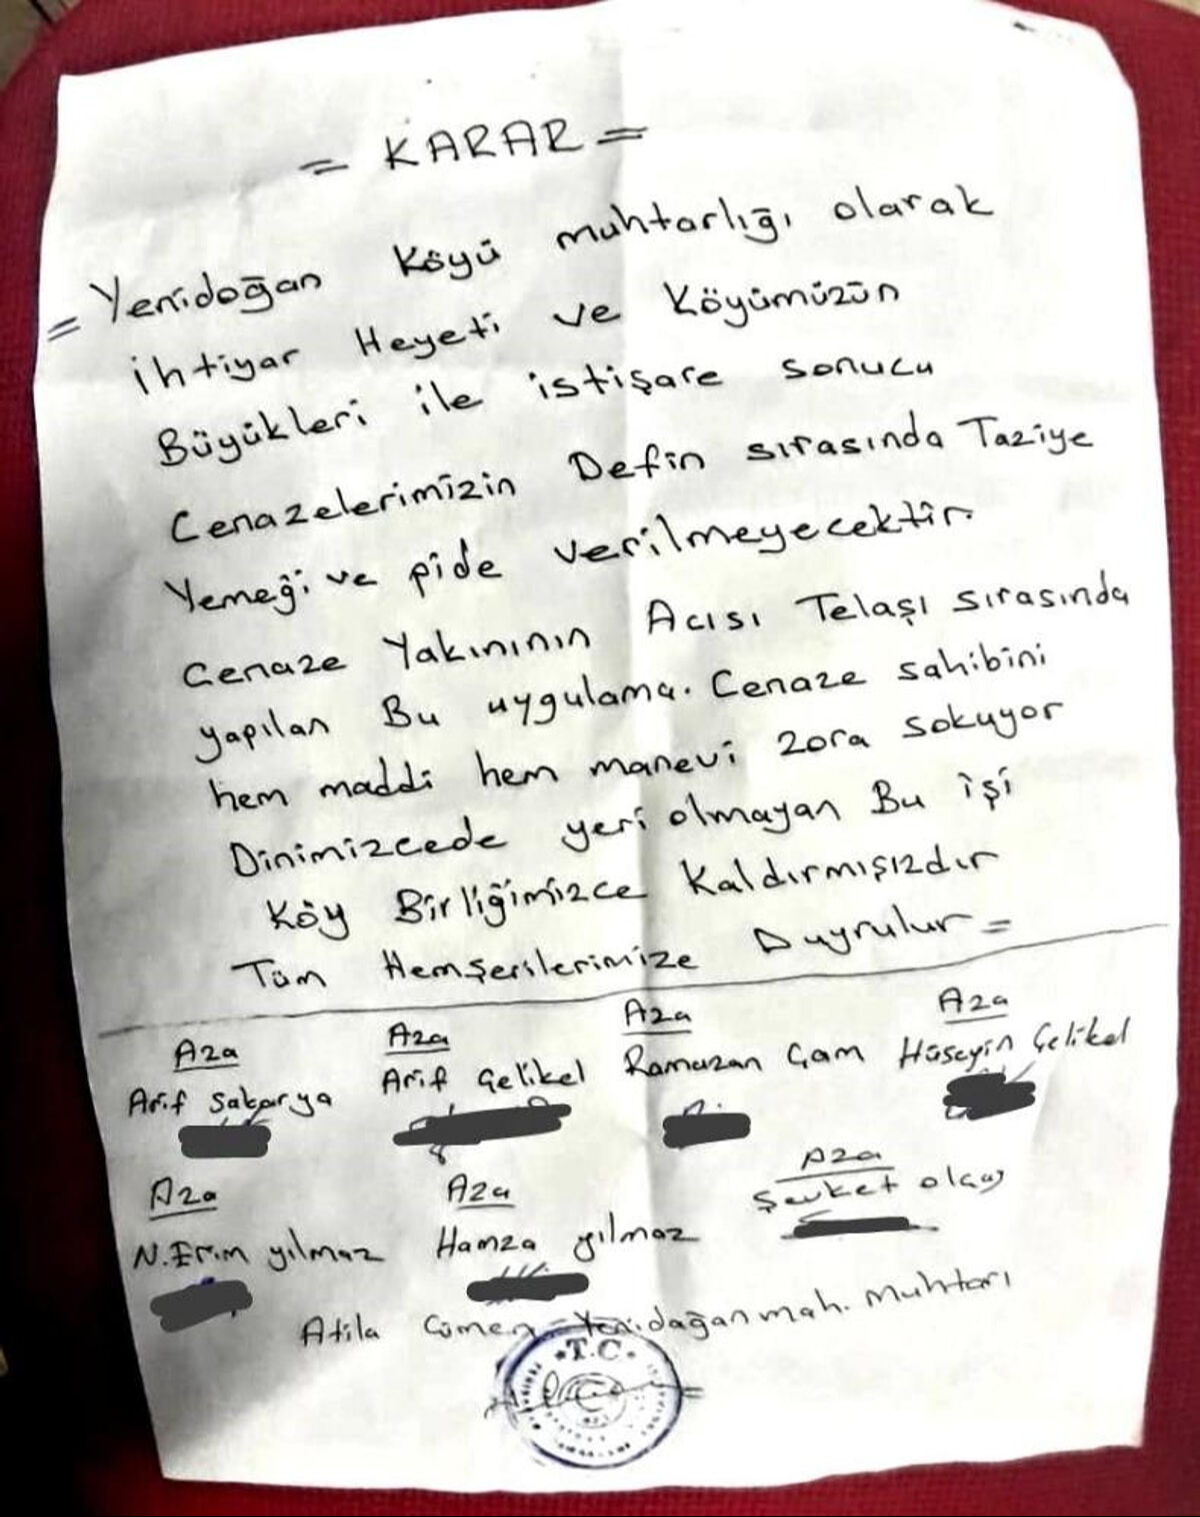 = KARAR =
= Yenidoğan Köyü muhtarlığı olarak
ihtiyar Heyeti ve Köyümüzün
Büyükleri ile istişare sonucu
Cenazelerimizin Defin sırasında Taziye
Yemeği ve pide verilmeyecektir.
Cenaze Yakınının Acısı Telaşı sırasında
yapılan Bu uygulama. Cenaze sahibini
hem maddi hem manevi zora sokuyor
Dinimizcede yeri olmayan Bu işi
Köy Birliğimizce Kaldırmışızdır
Tüm Hemşerilerimize Duyrulur =
Aza Aza Aza Aza
Arif Sakarya Arif Çelikel Ramazan Çam Hüseyin Çelikel
Aza Aza Aza
N. Erim yılmaz Hamza yılmaz Şevket olcay
Atila Cümen Yenidağan mah. Muhtarı
T.C.